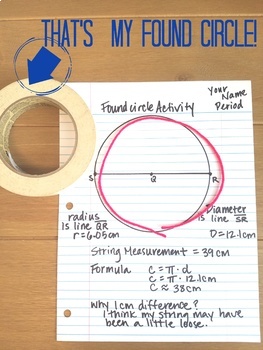 THAT'S MY FOUND CIRCLE!
Your
Name
Period
Found circle Activity
S Q R
radius
is line QR
r = 6.05cm
Diameter
is line SR
D = 12.1cm
String Measurement = 39cm
Formula C = π · d
C = π · 12.1cm
C ≈ 38cm
Why 1cm difference?
I think my string may have
been a little loose.